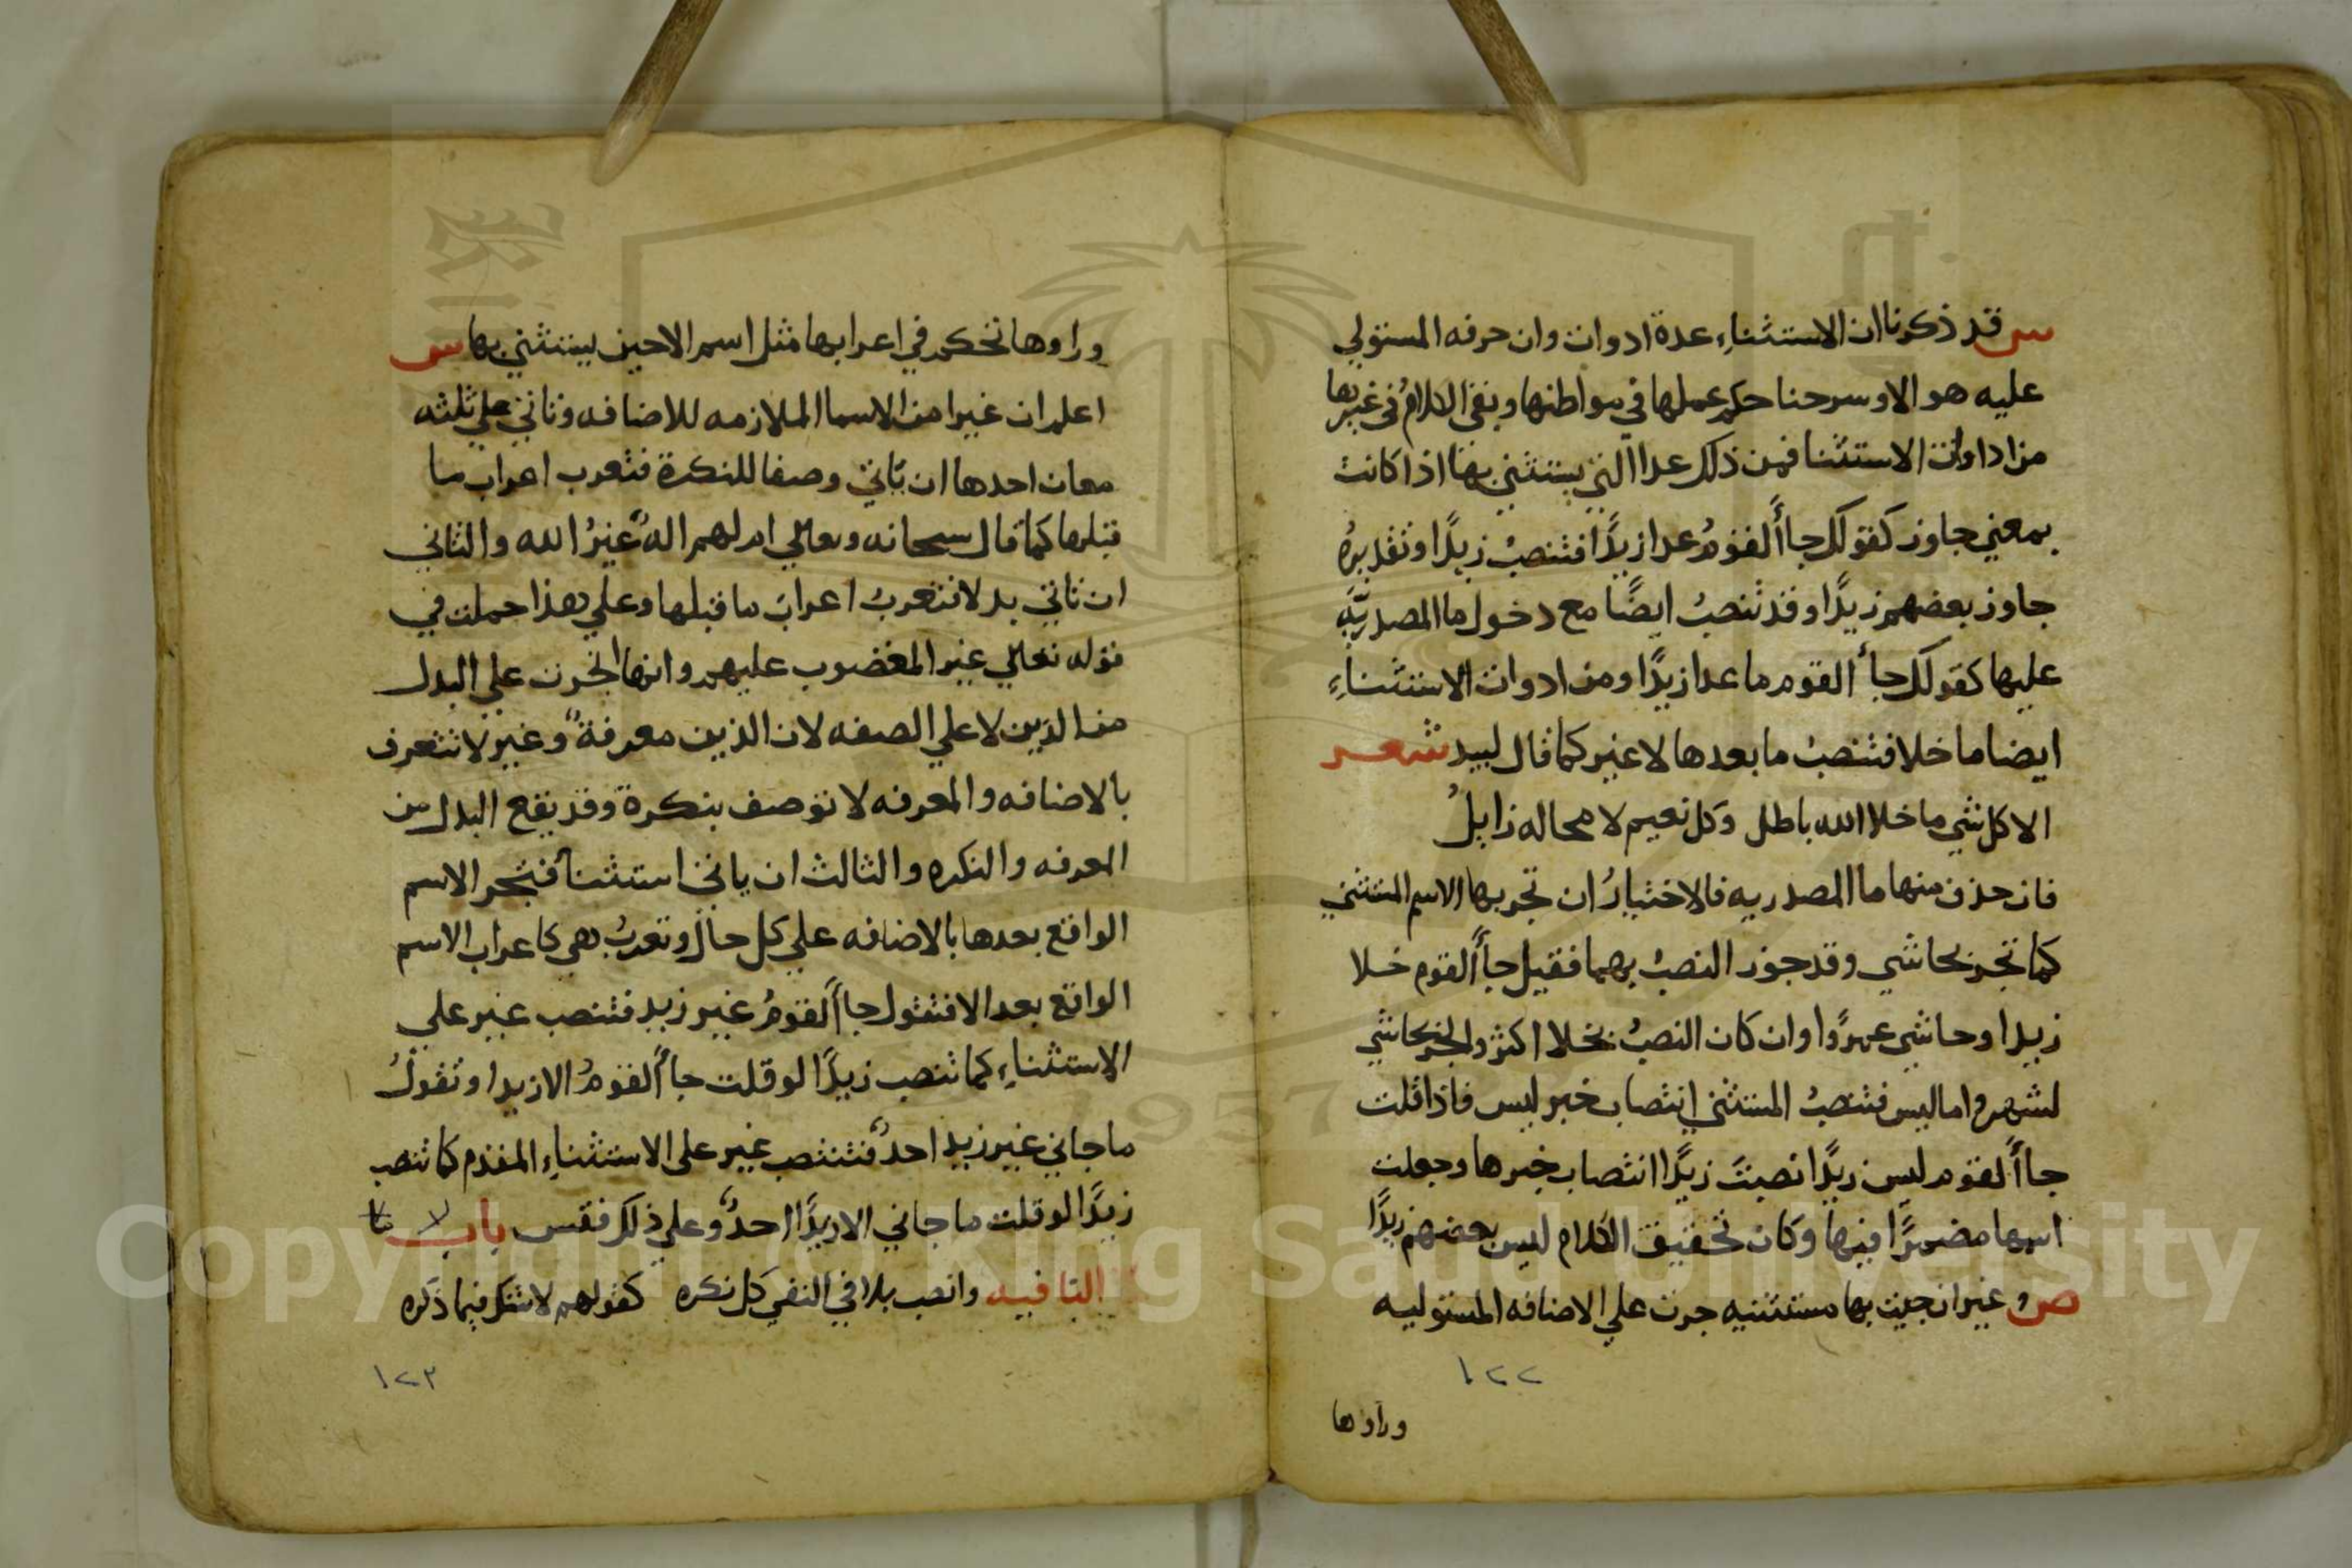 س قد ذكرنا ان الاستثناءِ عدة ادوات وان حرفه المستولي
عليه هو الا وسرحنا حكم عملها في مواطنها وبقي الكلامُ في غيرها
من اداوات الاستثنا فمن ذلك عدا التي يستثني بها اذا كانت
بمعني جاوز كقولك جاأَ القومُ عدا زيدًا فتنصبُ زيدًا وتقديرهُ
جاوز بعضهم زيدًا وقد تنصبُ ايضًا مع دخول ما المصدريَّهِ
عليها كقولك جأَ القوم ما عدا زيدًا ومن ادوات الاستثناءِ
ايضا ما خلا فتنصبُ ما بعدها لا غير كما قال لبيد شعر
الا كل شي ما خلا الله باطل وكل نعيم لا محاله زايلُ
فان حذف منها ما المصدريه فالاختيارُ ان تجر بها الاسم المستثني
كما تجر بحاشي وقد جوز النصبُ بهما فقيل جأَ القوم خلا
زيدا وحاشي عمرًوا وان كان النصبُ بخلا اكثر والجر بحاشي
لشهر واما ليس فتنصبُ المستثني انتصاب خبر ليس فاذا قلت
جاأَ لقوم ليس زيدًا نصبتَ زيدًا انتصاب خبرها وجعلت
اسمها مضمرًا فيها وكان تحقيق الكلام ليس بعضهم زيدًا
ص وغير ان جيت بها مستثنيه جرت علي الاضافه المستوليه
١٢٢
وراوها
وراوها تحكم في اعرابها مثل اسم الا حين يستثني بها س
اعلم ان غيرا من الاسما الملازمه للاضافه وتاتي علي ثلثه
معان احدها ان تاتي وصفا للنكرة فتعرب اعراب ما
قبلها كما قال سبحانه وتعالي ام لهم الهٌ غيرُ الله والثاني
ان تاتي بدلا فتعربُ اعرابَ ما قبلها وعلي هذا حملت في
قوله تعالي غير المغضوب عليهم وانها انجرت علي البدل
من الذين لا علي الصفه لان الذين معرفةٌ وغير لا تتعرف
بالاضافه والمعرفه لا توصف بنكرة وقد يقع البدل من
المعرفه والنكره والثالث ان ياتي استثنآ فتجر الاسم
الواقع بعدها بالاضافه علي كل حال وتعربُ هي كاعراب الاسم
الواقع بعد الا فتقول جاأَ لقومُ غير زيد فتنصب غير علي
الاستثناءِ كما تنصب زيدًا لو قلت جاأَ لقومُ الا زيدا وتقولُ
ما جاني غير زيد احدٌ فتنصب غير علي الاستثناءِ المقدم كما تنصب
زيدًا لو قلت ما جاني الا زيدًا احدٌ وعلي ذلك فقس باب لا
النافيه وانصب بلا في النفي كل نكره كقولهم لا شك فيما ذكره
١٢٣
Copyright © King Saud University
1957